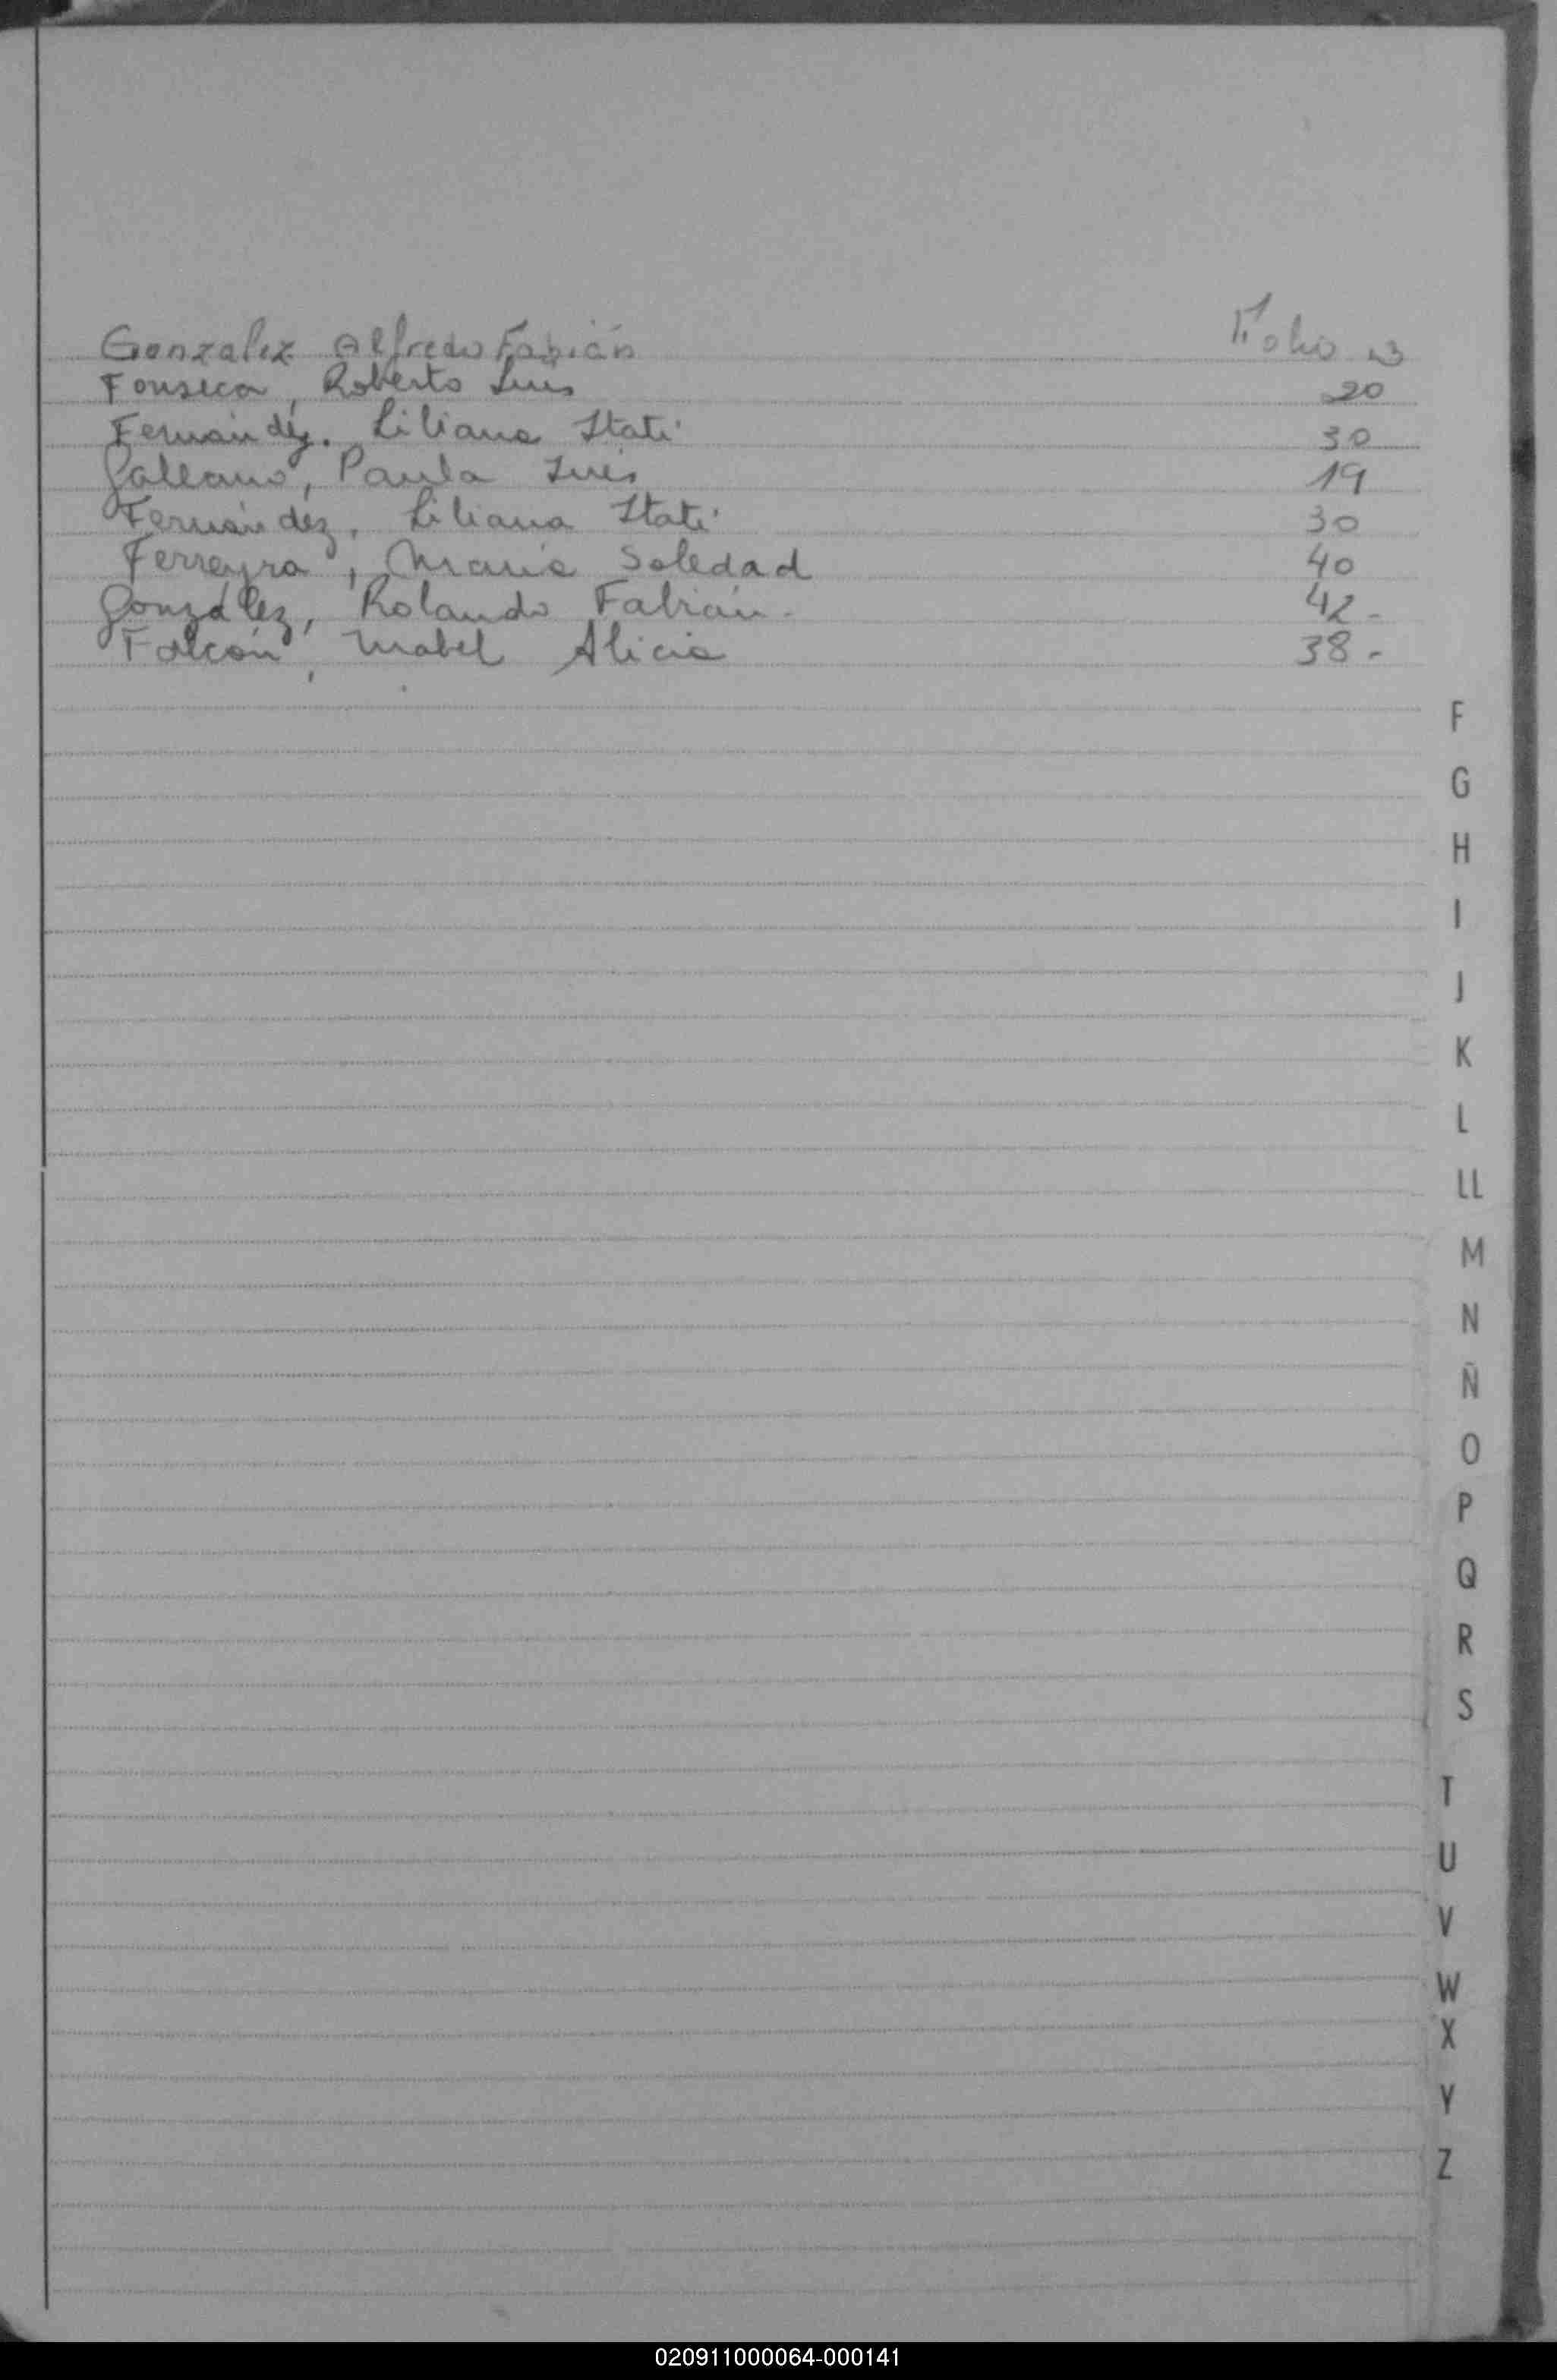 Gonzalez Alfredo Fabián Folio 3
Fonseca, Roberto Luis 20
Fernández. Liliana Itatí 30
Galeano, Paula Inés 19
Fernández, Liliana Itatí 30
Ferreyra, María Soledad 40
González, Rolando Fabián - 42 -
Falcón, Mabel Alicia 38 -
F
G
H
I
J
K
L
LL
M
N
Ñ
O
P
Q
R
S
T
U
V
W
X
Y
Z
020911000064-000141